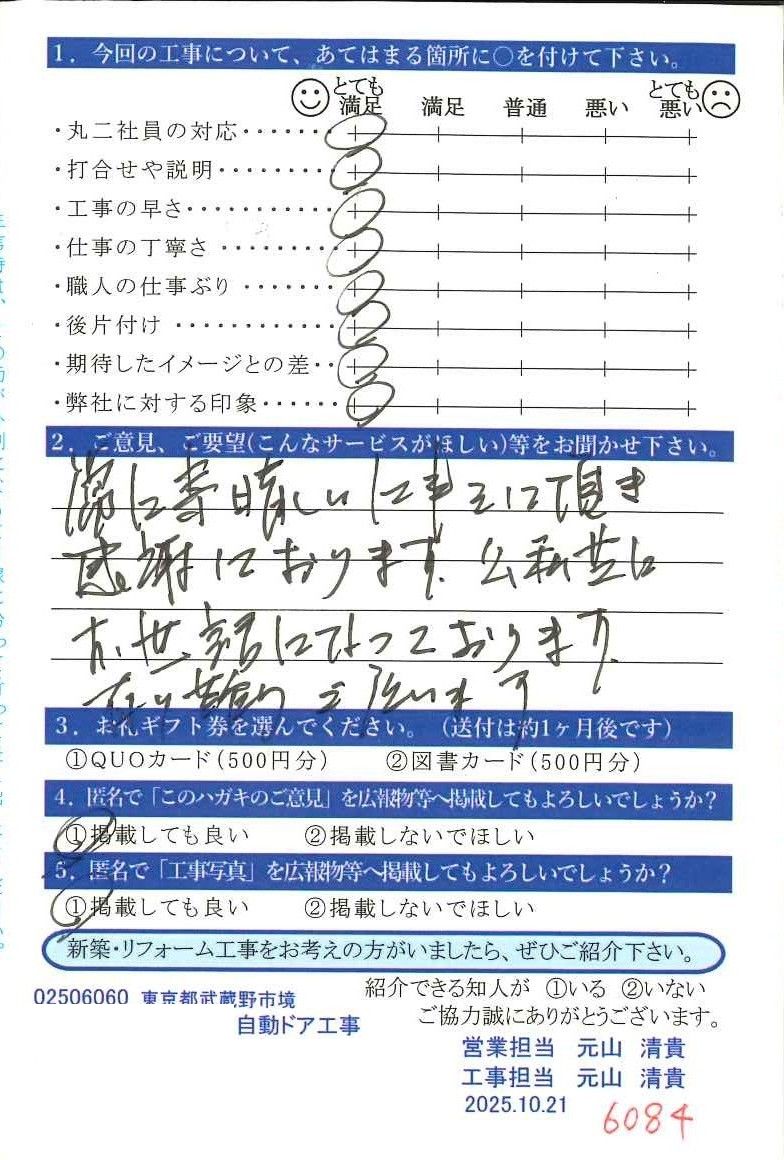 1．今回の工事について、あてはまる箇所に○を付けて下さい。
とても満足 満足 普通 悪い とても悪い
・丸二社員の対応・・・・・・・
・打合せや説明・・・・・・・・・
・工事の早さ・・・・・・・・・・・
・仕事の丁寧さ・・・・・・・・・
・職人の仕事ぶり・・・・・・・
・後片付け・・・・・・・・・・・・
・期待したイメージとの差・・
・弊社に対する印象・・・・・・
2．ご意見、ご要望(こんなサービスがほしい)等をお聞かせ下さい。
常に素晴しい工事をして頂き
感謝しております。公私共に
お世話になっております。
有り難うございます
3．お礼ギフト券を選んでください。（送付は約1ヶ月後です）
①QUOカード(500円分) ②図書カード(500円分)
4．匿名で「このハガキのご意見」を広報物等へ掲載してもよろしいでしょうか?
①掲載しても良い ②掲載しないでほしい
5．匿名で「工事写真」を広報物等へ掲載してもよろしいでしょうか?
①掲載しても良い ②掲載しないでほしい
新築・リフォーム工事をお考えの方がいましたら、ぜひご紹介下さい。
紹介できる知人が ①いる ②いない
02506060 東京都武蔵野市境
ご協力誠にありがとうございます。
自動ドア工事
営業担当 元山 清貴
工事担当 元山 清貴
2025.10.21
6084